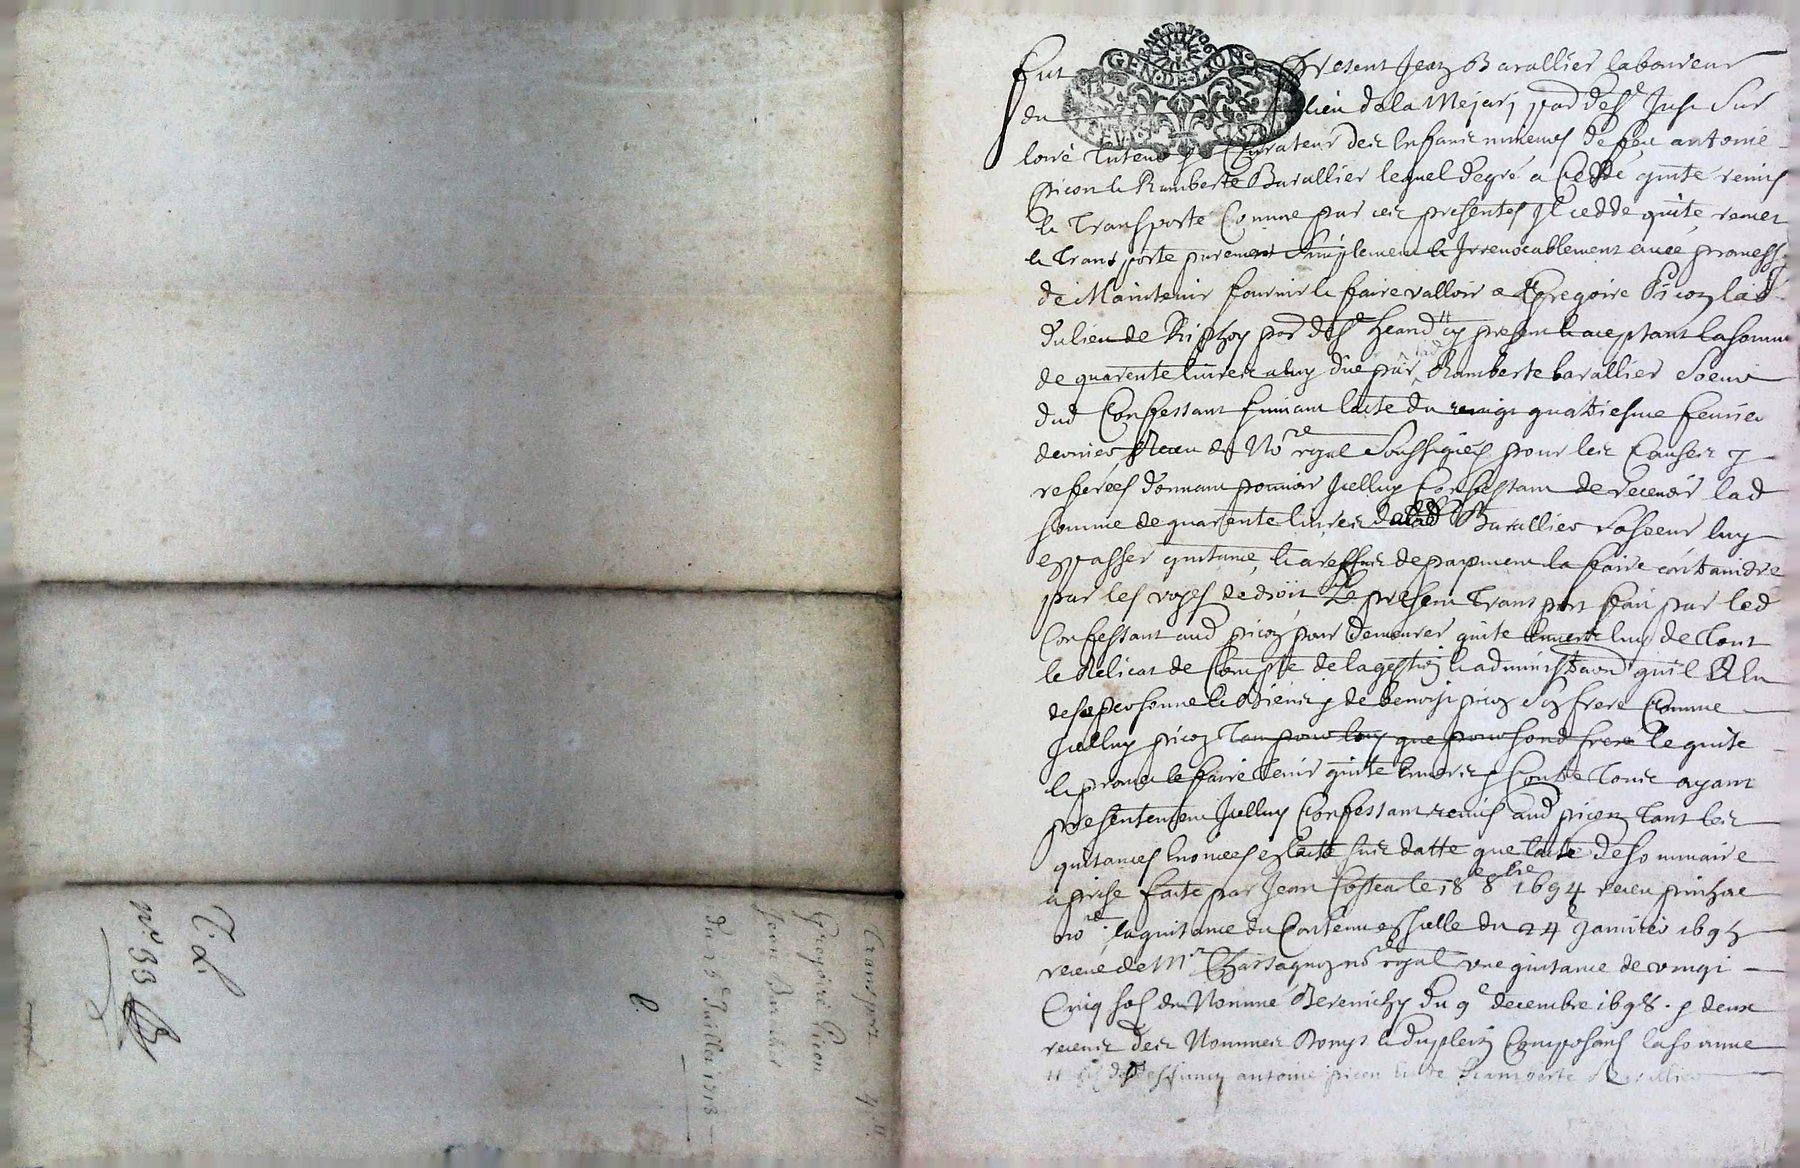 Transport 4.tt
Gregoire Picon
Jean Barallier
du 25e Juillet 1713
T. L.
no 33
GEN. DE LION
Fut present Jean Barallier laboureur
du lieu de la Mejarj par de St Just Sur
loire Tuteur & Curateur des Enfans mineurs de feu antoine
picon & Ramberte Barallier lequel degré a Ceddé quitte remis
& Transporte Comme par ces presentes Il cedde quite remet
& Transporte purement Simplement & Irrevocablement avec promesse
de Maintenir fournir & faire valloir a Gregoire Picon lad
du lieu de par de St heand cy present & aceptant la somme
de quarente livres a luy due par lad Ramberte barallier Soeur
dud Confessant suivant lacte du vingt quatriesme feuvrier
dernier Receu du No.re royal Soussignes pour les Causes y
referées donnant pouvoir Icelluy Confessant de recevoir lad
somme de quarente livres de lad Barallier sa soeur luy
en passer quitance, & a reffus de payement la faire contraindre
par les voyes de droit Le present Transport fait par led
Confessant aud picon pour demeurer quite envers luy de Tout
le Relicat de Compte de la gestion & administraon quil a Eu
de sa personne & Biens & de benoist picon Son frere Comme
Icelluy picon Tan pour luy que pour sond frere le quite
& promet le faire Tenir quite Envers & Contre Tous ayant
presentement Icelluy Confessant remis aud picon Tant les
quitances Enoncees en lacte sus datte que lacte de sommaire
aprise faite par Jean Costea le 18e 8bre 1694 receu
no.re la quitance du Contenu en Icelle du 24e Janvier 1695
receue de M.r Chassagnon no.re royal une quitance de vingt
Cinq sols du Nomme Berenichy du 9e decembre 1698. & deux
receus des Nommes Romps & duplein Composans la somme
antoine picon & de Ramberte Barallier